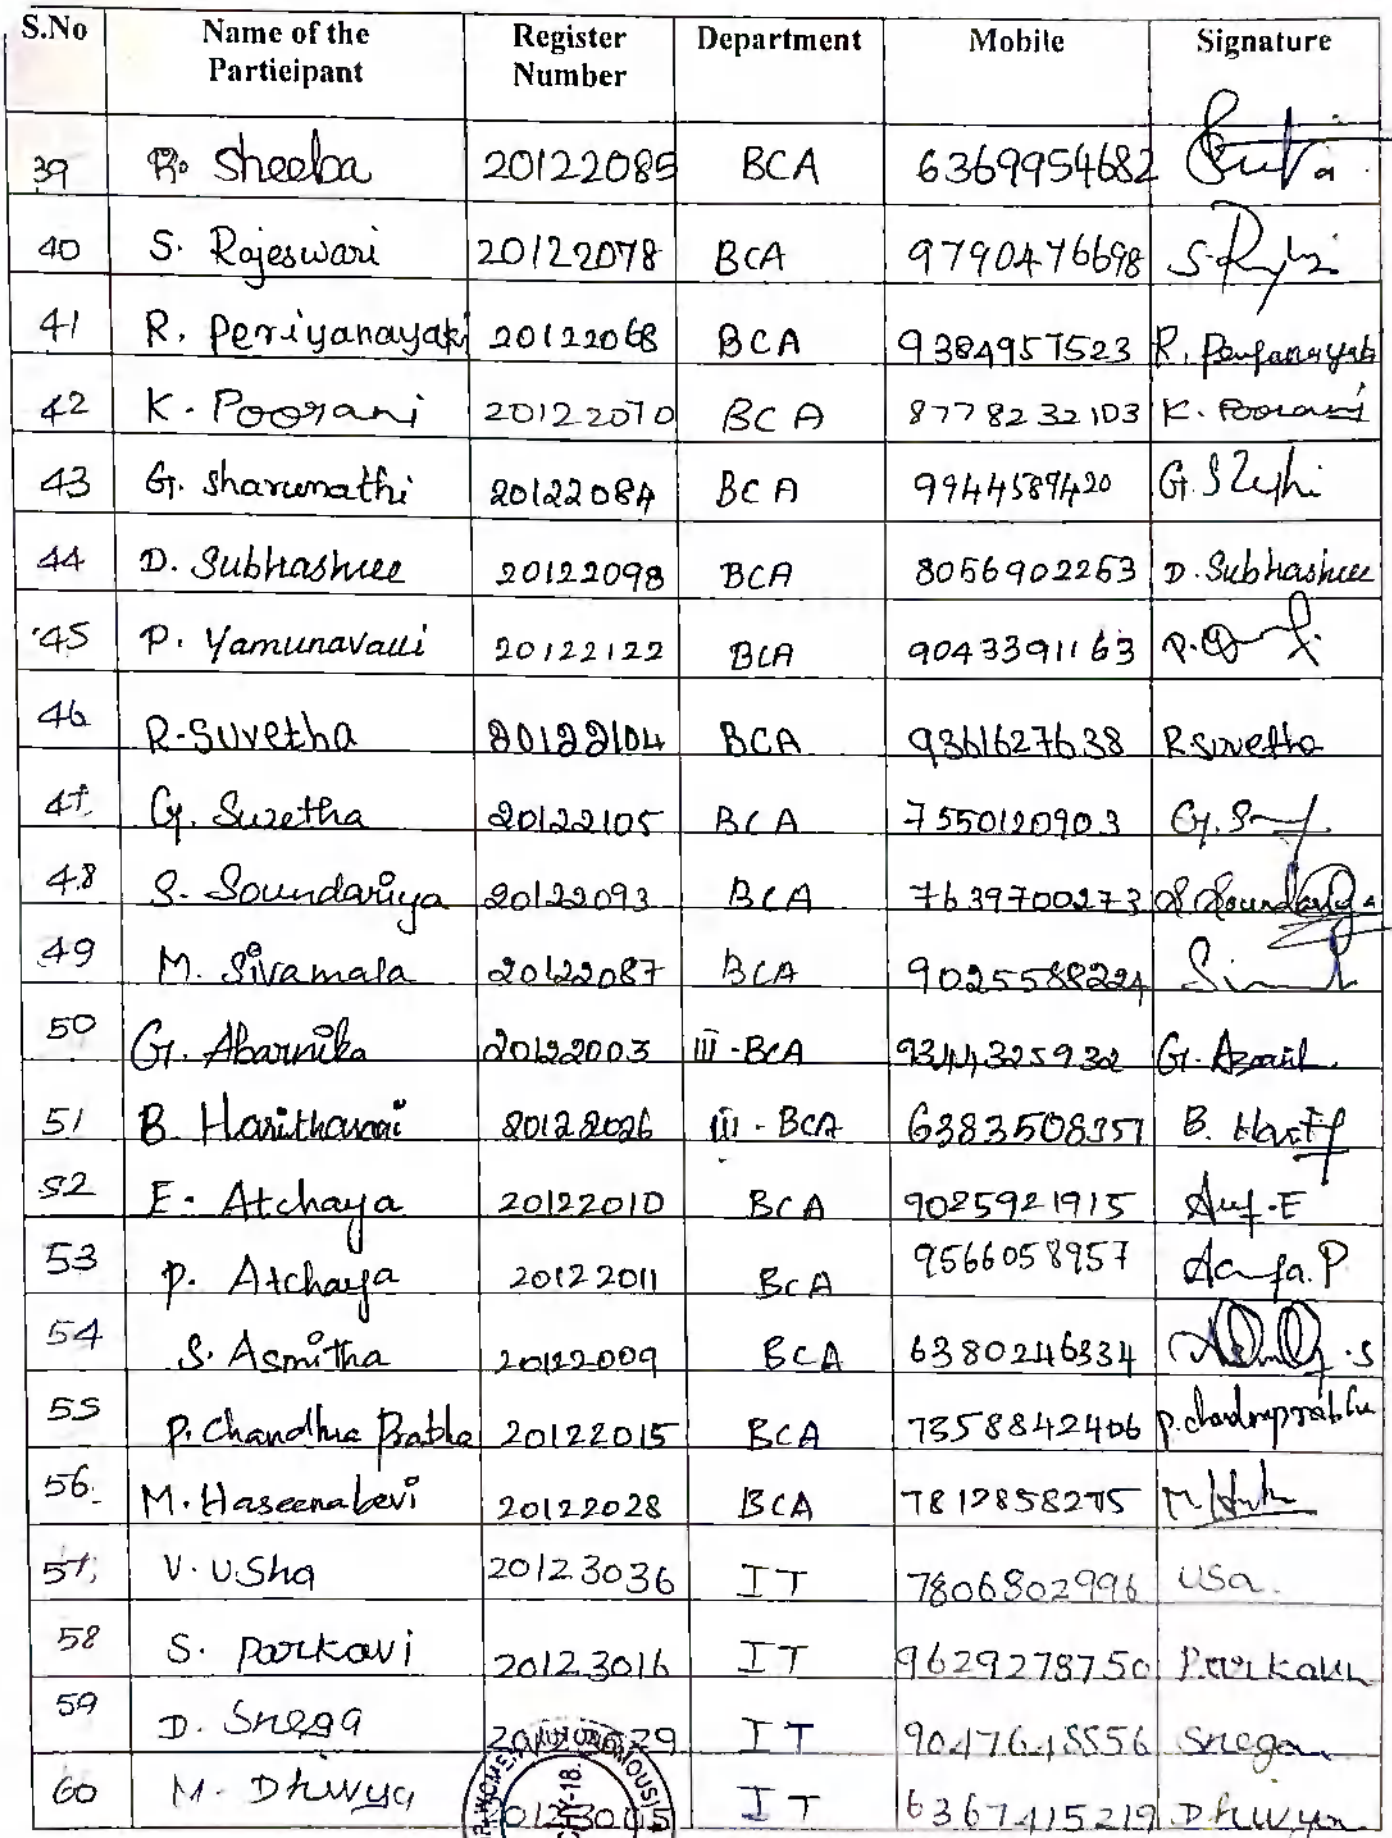 S.No Name of the Participant Register Number Department Mobile Signature
39 R. Sheeba 20122085 BCA 6369954682
40 S. Rajeswari 20122078 BCA 9790476698
41 R. Periyanayaki 20122068 BCA 9384957523 R.
42 K. Poorani 20122070 BCA 8778232103 K. Poorani
43 G. Sharumathi 20122084 BCA 9944589420 G.
44 D. Subhashree 20122098 BCA 8056902253 D. Subhashree
45 P. Yamunavalli 20122122 BCA 9043391163 P.
46 R. Suvetha 20122104 BCA 9361627638 R Suvetha
47. G. Suvetha 20122105 BCA 7550120903 G.
48 S. Soundariya 20122093 BCA 7639700273 S
49 M. Sivamala 20122087 BCA 9025588224
50 G. Abarnika 20122003 III - BCA 9344325932 G.
51 B. Haritharani 20122026 III - BCA 6383508357 B.
52 E. Atchaya 20122010 BCA 9025921915 E
53 P. Atchaya 20122011 BCA 9566058957 P
54 S. Asmitha 20122009 BCA 6380246334 .S
55 P. Chandhra Prabha 20122015 BCA 7358842406 P.
56. M. Haseenabevi 20122028 BCA 7812858275 M
57. V. Usha 20123036 IT 7806802996 Usa.
58 S. Parkavi 20123016 IT 9629278750 Parkavi
59 D. Snega IT 9047648556 Snega
60 M. Dhivya IT 6367415219 Dhivya